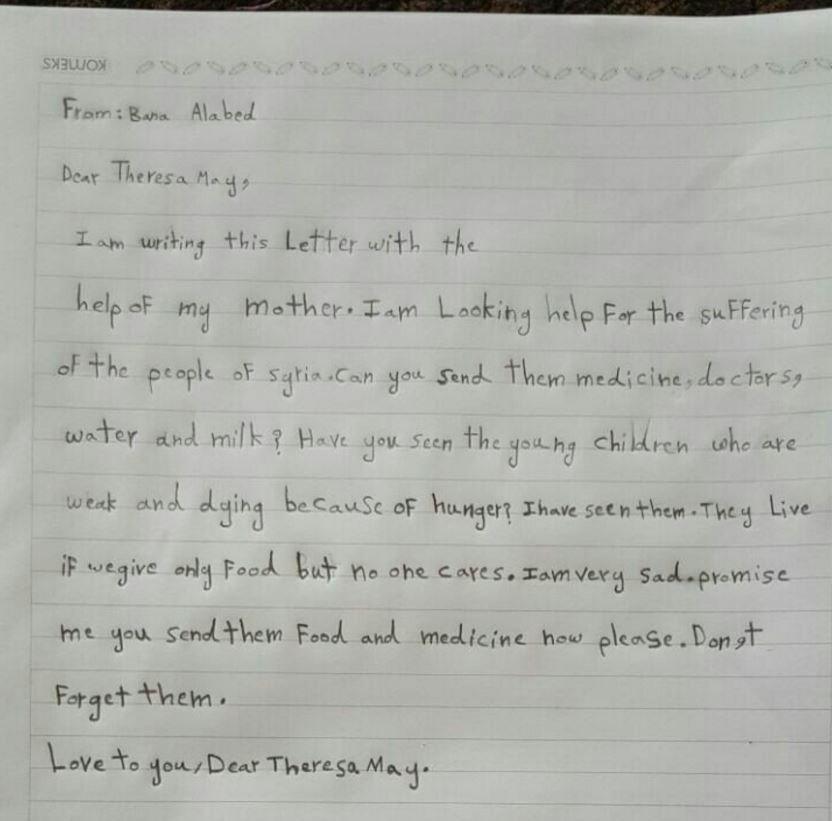 KOMTEKS
From: Bana Alabed
Dear Theresa May,
I am writing this Letter with the
help of my mother. I am Looking help For the suffering
of the people of syria. Can you send them medicine, doctors,
water and milk? Have you seen the young children who are
weak and dying because of hunger? I have seen them. They Live
if we give only Food but no one cares. I am very sad. promise
me you send them Food and medicine now please. Don,t
Forget them.
Love to you, Dear Theresa May.